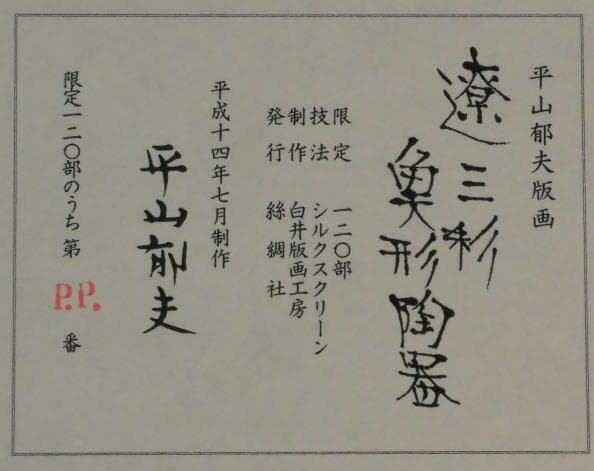 平山郁夫版画
遼三彩
魚形陶器
限定 一二〇部
技法 シルクスクリーン
制作 白井版画工房
発行 絲綢社
平成十四年七月制作
平山郁夫
限定一二〇部のうち第 P.P. 番